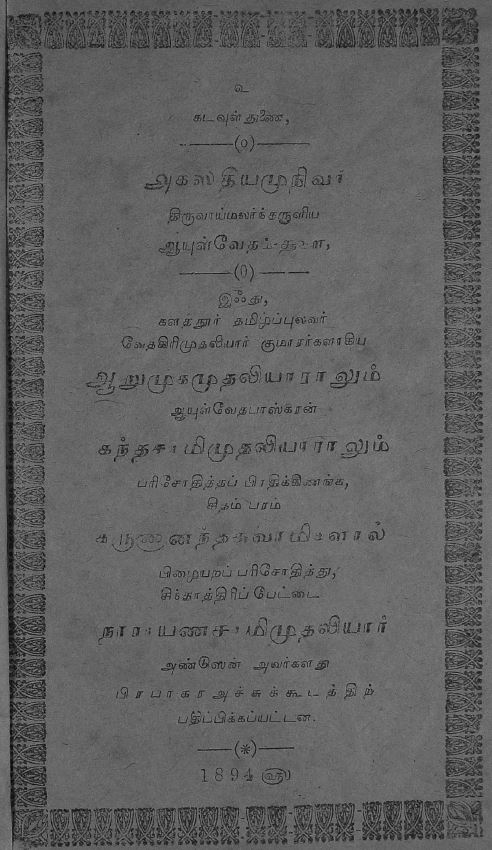 உ
கடவுள் துணை,
(0)
அகஸ்தியமுநிவர்
திருவாய்மலர்ந்தருளிய
ஆயுள்வேதம்
(0)
இஃது,
களத்தூர் தமிழ்ப்புலவர்
வேதகிரிமுதலியார் குமாரர்களாகிய
ஆறுமுகமுதலியாராலும்
ஆயுள்வேதபாஸ்கரன்
கந்தசாமிமுதலியாராலும்
பரிசோதித்தப் பிரதிக்கிணங்க,
சிதம்பரம்
கருணானந்தசுவாமிகளால்
பிழையறப் பரிசோதித்து,
சிந்தாத்திரிப் பேட்டை
நாராயணசாமிமுதலியார்
அண்டுஸன் அவர்களது
பிரபாகர அச்சுக்கூடத்திற்
பதிப்பிக்கப்பட்டன.
(*)
1894 ௵